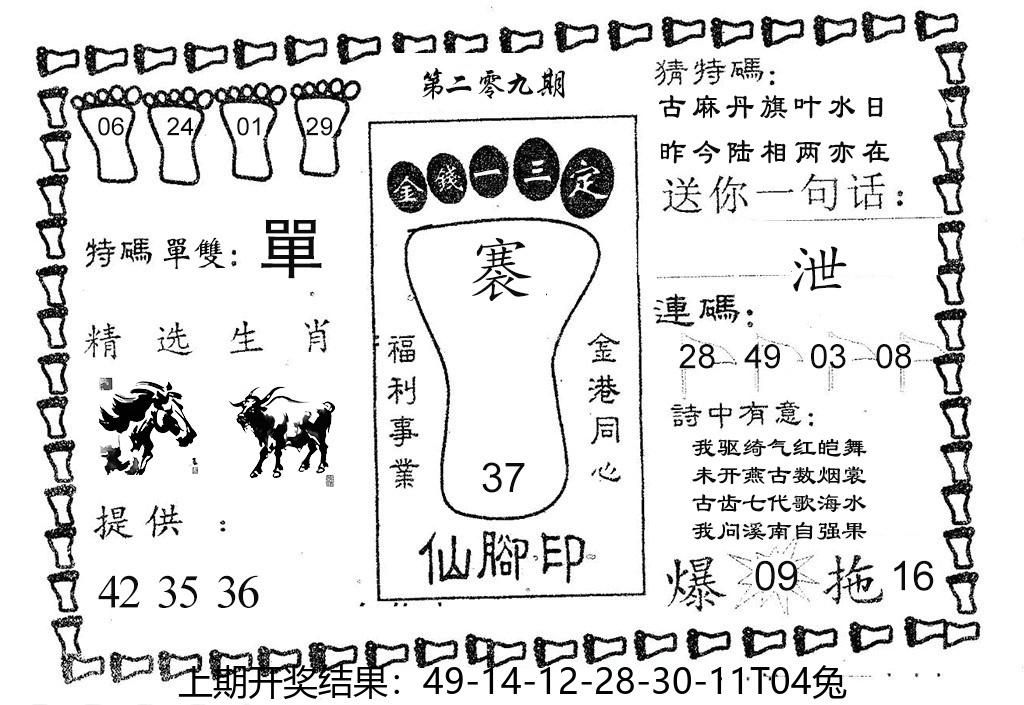 第二零九期
06 24 01 29
特碼單雙：單
精选生肖
提供：
42 35 36
金錢一三定
褰
福利事業
金港同心
37
仙腳印
猜特碼：
古麻丹旗叶水日
昨今陆相两亦在
送你一句话：
泄
連碼：
28 49 03 08
詩中有意：
我驱绮气红皑舞
未开燕古数烟裳
古齿七代歌海水
我问溪南自强果
爆 09 拖 16
上期开奖结果：49-14-12-28-30-11T04兔